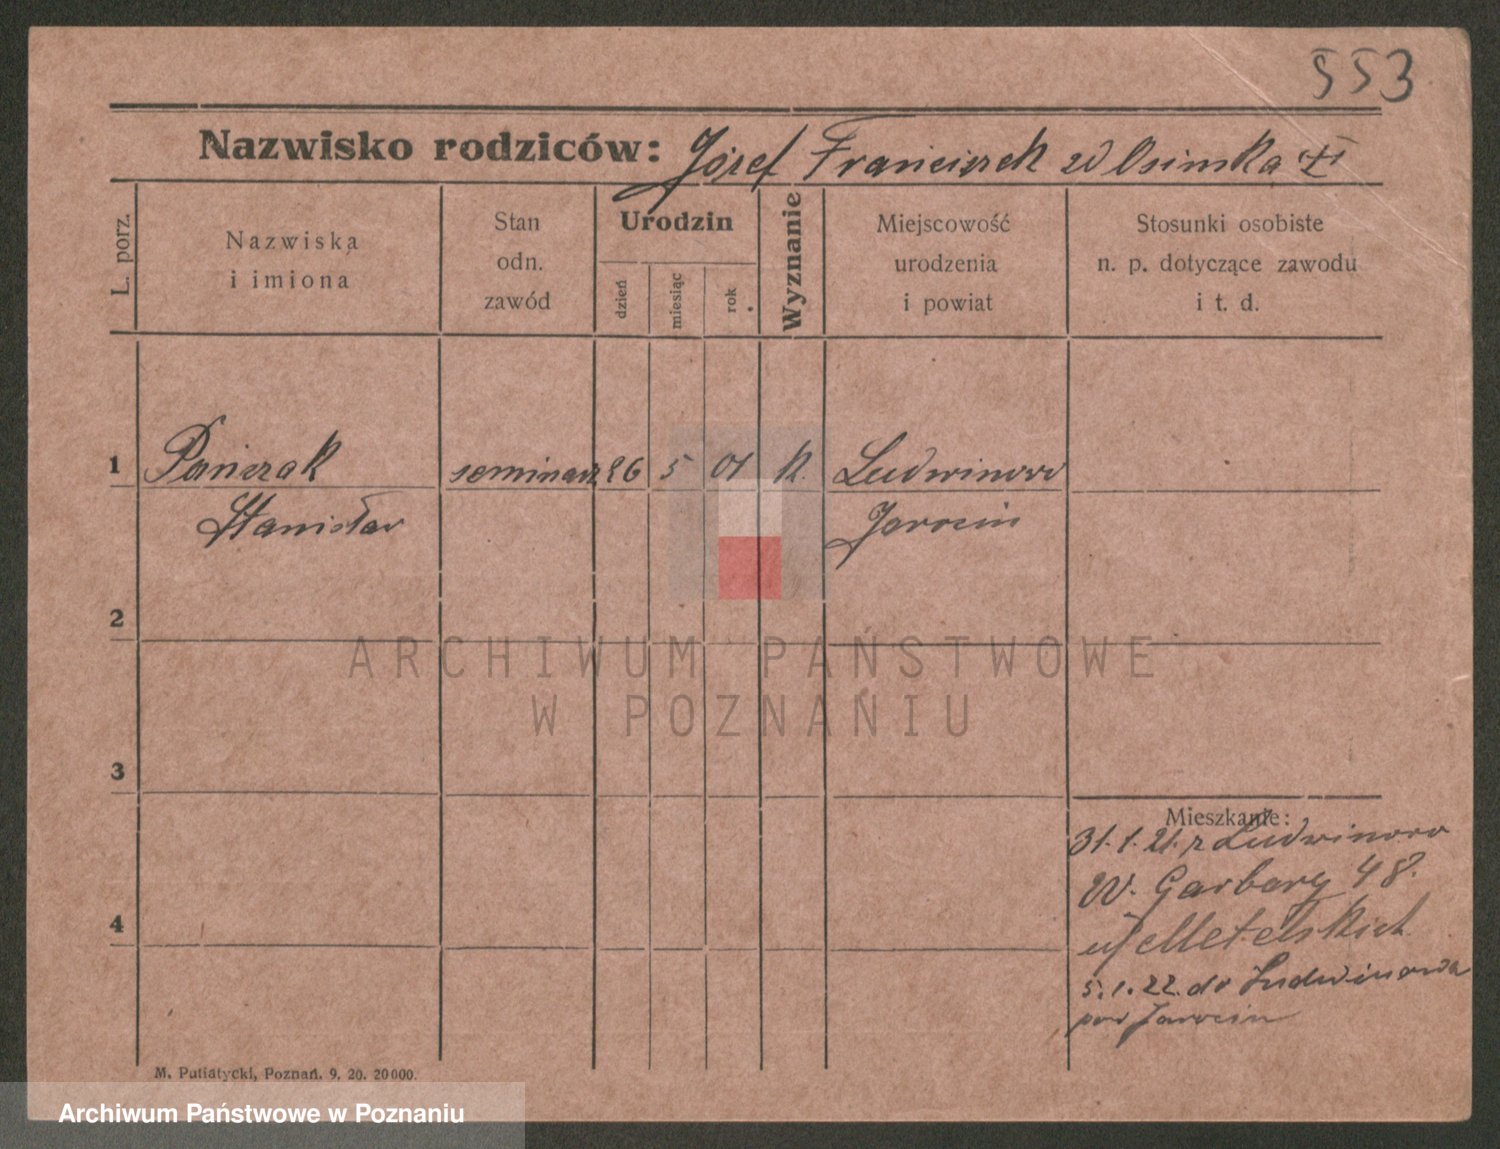 553
Nazwisko rodziców: Józef Franciszek
L. porz.
Nazwiska
i imiona
Stan
odn.
zawód
Urodzin
dzień
miesiąc
rok
Wyznanie
Miejscowość
urodzenia
i powiat
Stosunki osobiste
n. p. dotyczące zawodu
i t. d.
1 seminarz 26 5 01 k. Ludwinowo
Stanisław Jarocin
2
ARCHIWUM PAŃSTWOWE
W POZNANIU
3
Mieszkanie:
31.1.21. z Ludwinowo
W. Garbary 48.
u Metelskich
4
5.1.22. do Ludwinowa
pow Jarocin
M. Putiatycki, Poznań. 9. 20. 20000.
Archiwum Państwowe w Poznaniu